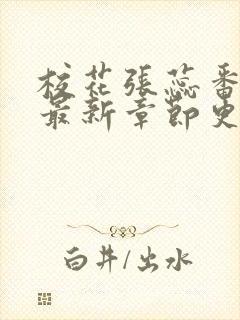 校花張蕊番
最新章節史
白井/出水